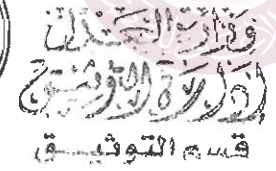 وزارة العدل
إدارة التوثيق
قسم التوثيق